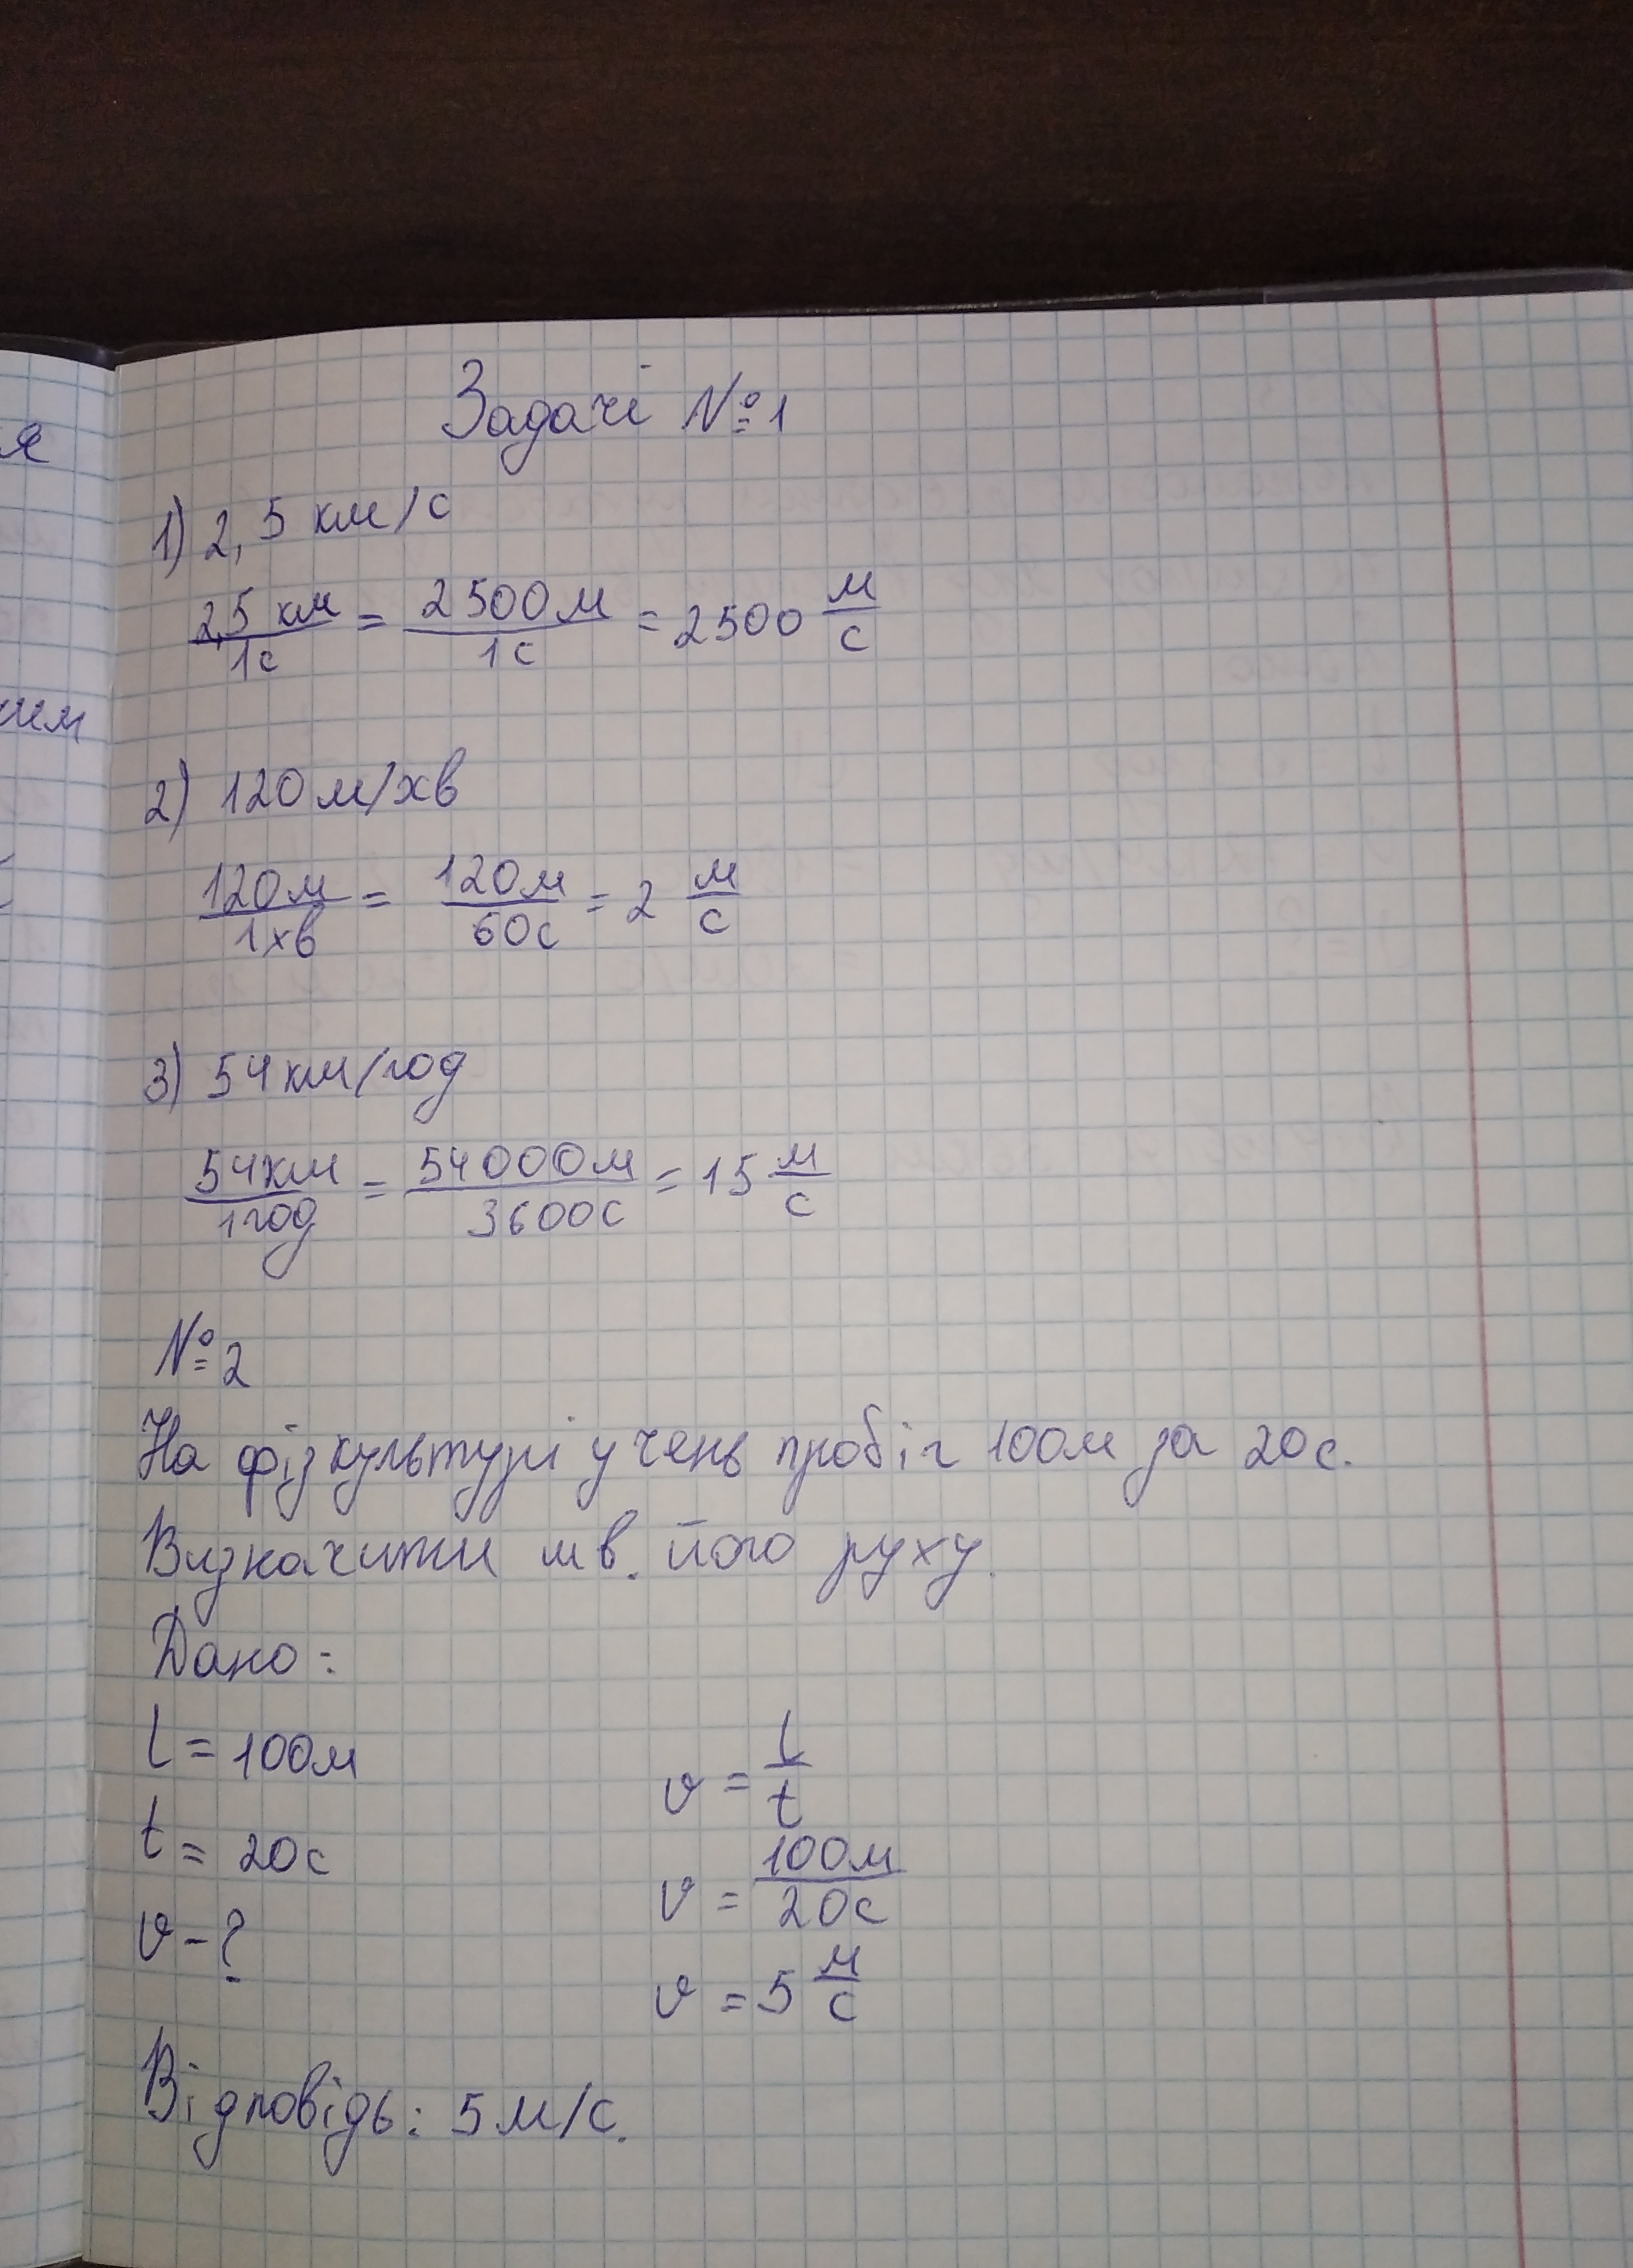 я
Задачі №1
1) 2,5 км/с
2,5 км/1с = 2500м/1с = 2500 м/с
2) 120м/хв
120м/1хв = 120м/60с = 2 м/с
3) 54км/год
54км/1год = 54000м/3600с = 15 м/с
№2
На фізкультурі учень пробіг 100м за 20с.
Визначити шв. його руху.
Дано:
l = 100м
v = l/t
t = 20с
v = 100м/20с
v - ?
v = 5 м/с
Відповідь: 5м/с.